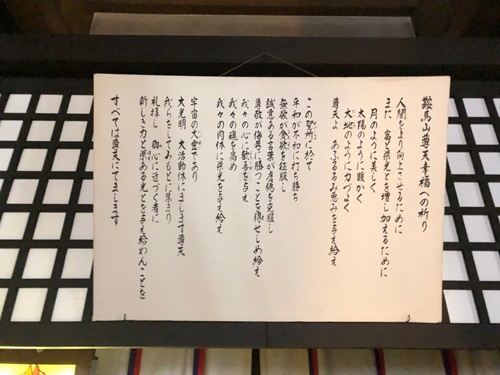 鞍馬山尊天幸福への祈り
人間をより向上させるために
また 富と栄光とを増し加えるために
月のように美しく
太陽のように暖かく
大地のように力づよく
尊天よ あふるるみ恵みを与え給え
この聖所に於て
平和が不和に打ち勝ち
無欲が貪欲を征服し
誠意ある言葉が虚偽を克服し
尊敬が侮辱に勝つことを得せしめ給え
我々の心に歓喜を与え
我々の魂を高め
我々の肉体に栄光を与え給え
宇宙の大霊であり
大光明 大活動体にまします尊天
我らをしてみもとに集まり
礼拝し 御心に近づく者に
新しき力と栄ある光とを与え給わんことを
すべては尊天にてまします